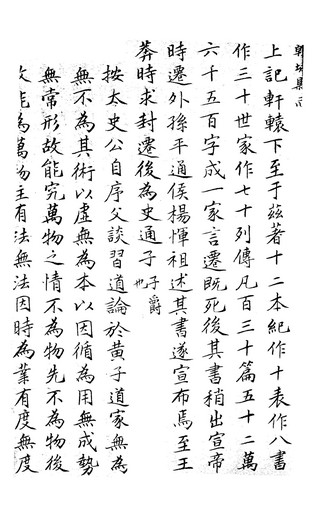 上記軒轅下至于茲著十二本紀作十表作八書
作三十世家作七十列傳凡百三十篇五十二萬
六千五百字成一家言遷旣死後其書稍出宣帝
時遷外孫平通侯楊惲祖述其書遂宣布焉至王
莽時求封遷後為史通子子爵也
按太史公自序父談習道論於黃子道家無為
無不為其術以虛無為本以因循為用無成勢
無常形故能究萬物之情不為物先不為物後
故能為萬物主有法無法因時為業有度無度